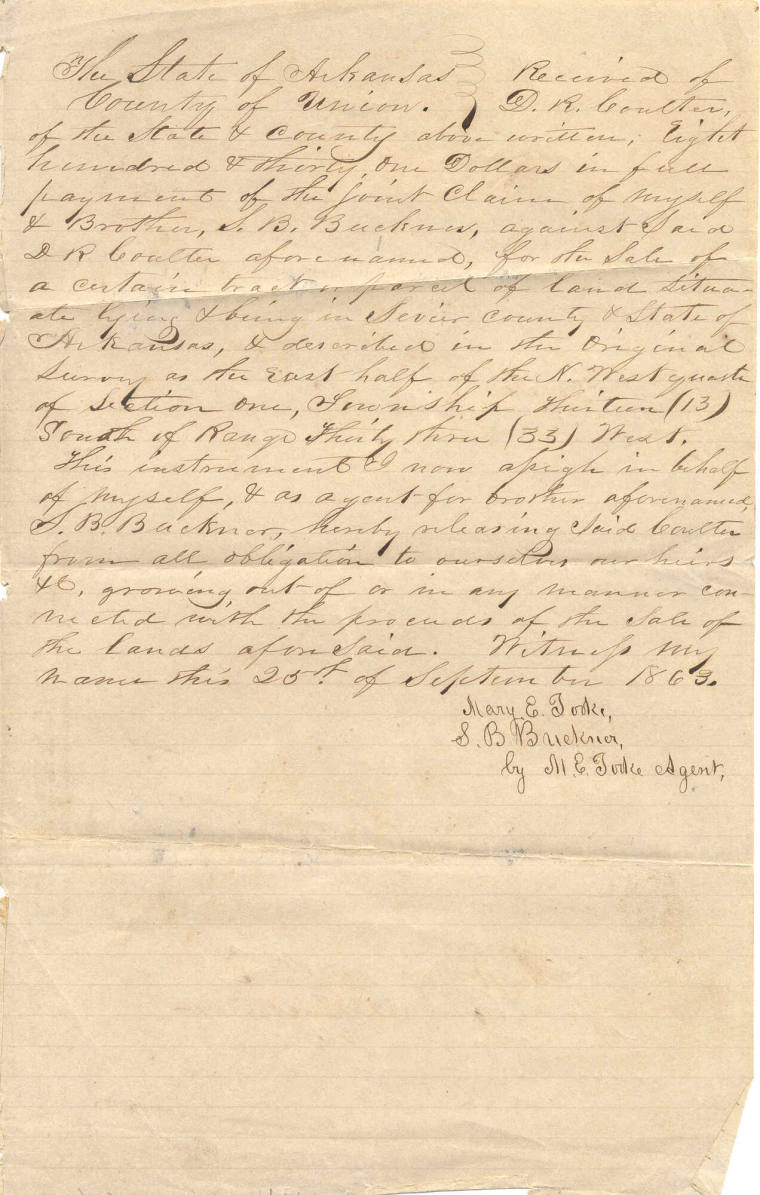 The State of Arkansas } Received of
County of Union. } D. R. Coulter,
of the State & County above written, Eight
hundred & thirty one Dollars in full
payment of the joint Claim of myself
& Brother, S. B. Buckner, against Said
D R Coulter aforenamed, for the Sale of
a certain tract or parcel of land Situa-
ate lying & being in Sevier county & State of
Arkansas, & described in the Original
Survey as the East half of the N. West quarter
of Section One, Township thirteen (13)
South of Range Thirty three (33) West.
This instrument I now assign in behalf
of myself, & as agent for brother aforenamed,
S. B. Buckner, hereby releasing Said Coulter
from all obligation to ourselves our heirs
&C, growing out of or in any manner con-
nected with the proceeds of the Sale of
the lands aforesaid. Witness my
name this 25th of September 1863.
Mary E. Tooke,
S. B Buckner,
by M. E. Tooke Agent,